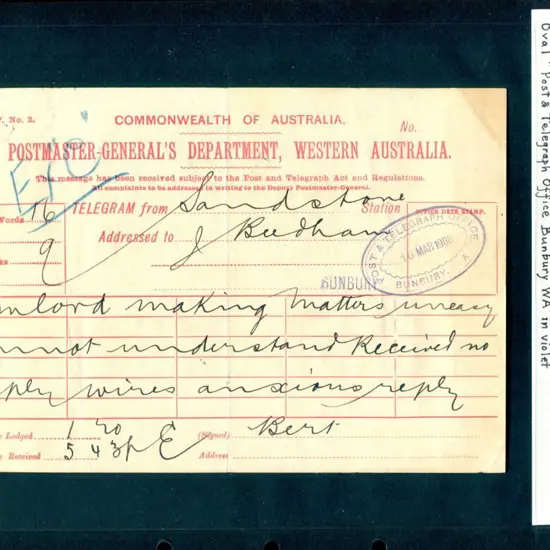 No. 2.
COMMONWEALTH OF AUSTRALIA.
No.
POSTMASTER-GENERAL'S DEPARTMENT, WESTERN AUSTRALIA.
This message has been received subject to the Post and Telegraph Act and Regulations.
All complaints to be addressed in writing to the Deputy Postmaster-General.
Words 16 TELEGRAM from Sandstone Station
OFFICE DATE STAMP.
9 Addressed to J Beedham
POST & TELEGRAPH OFFICE
10 MAR 1908
BUNBURY, W.A
BUNBURY
making matters uneasy
understand Received no
wires anxious reply
Lodged 1 20 (Signed) Bert
Received 5 43p E Address
Oval "Post & Telegraph Office Bunbury WA in violet